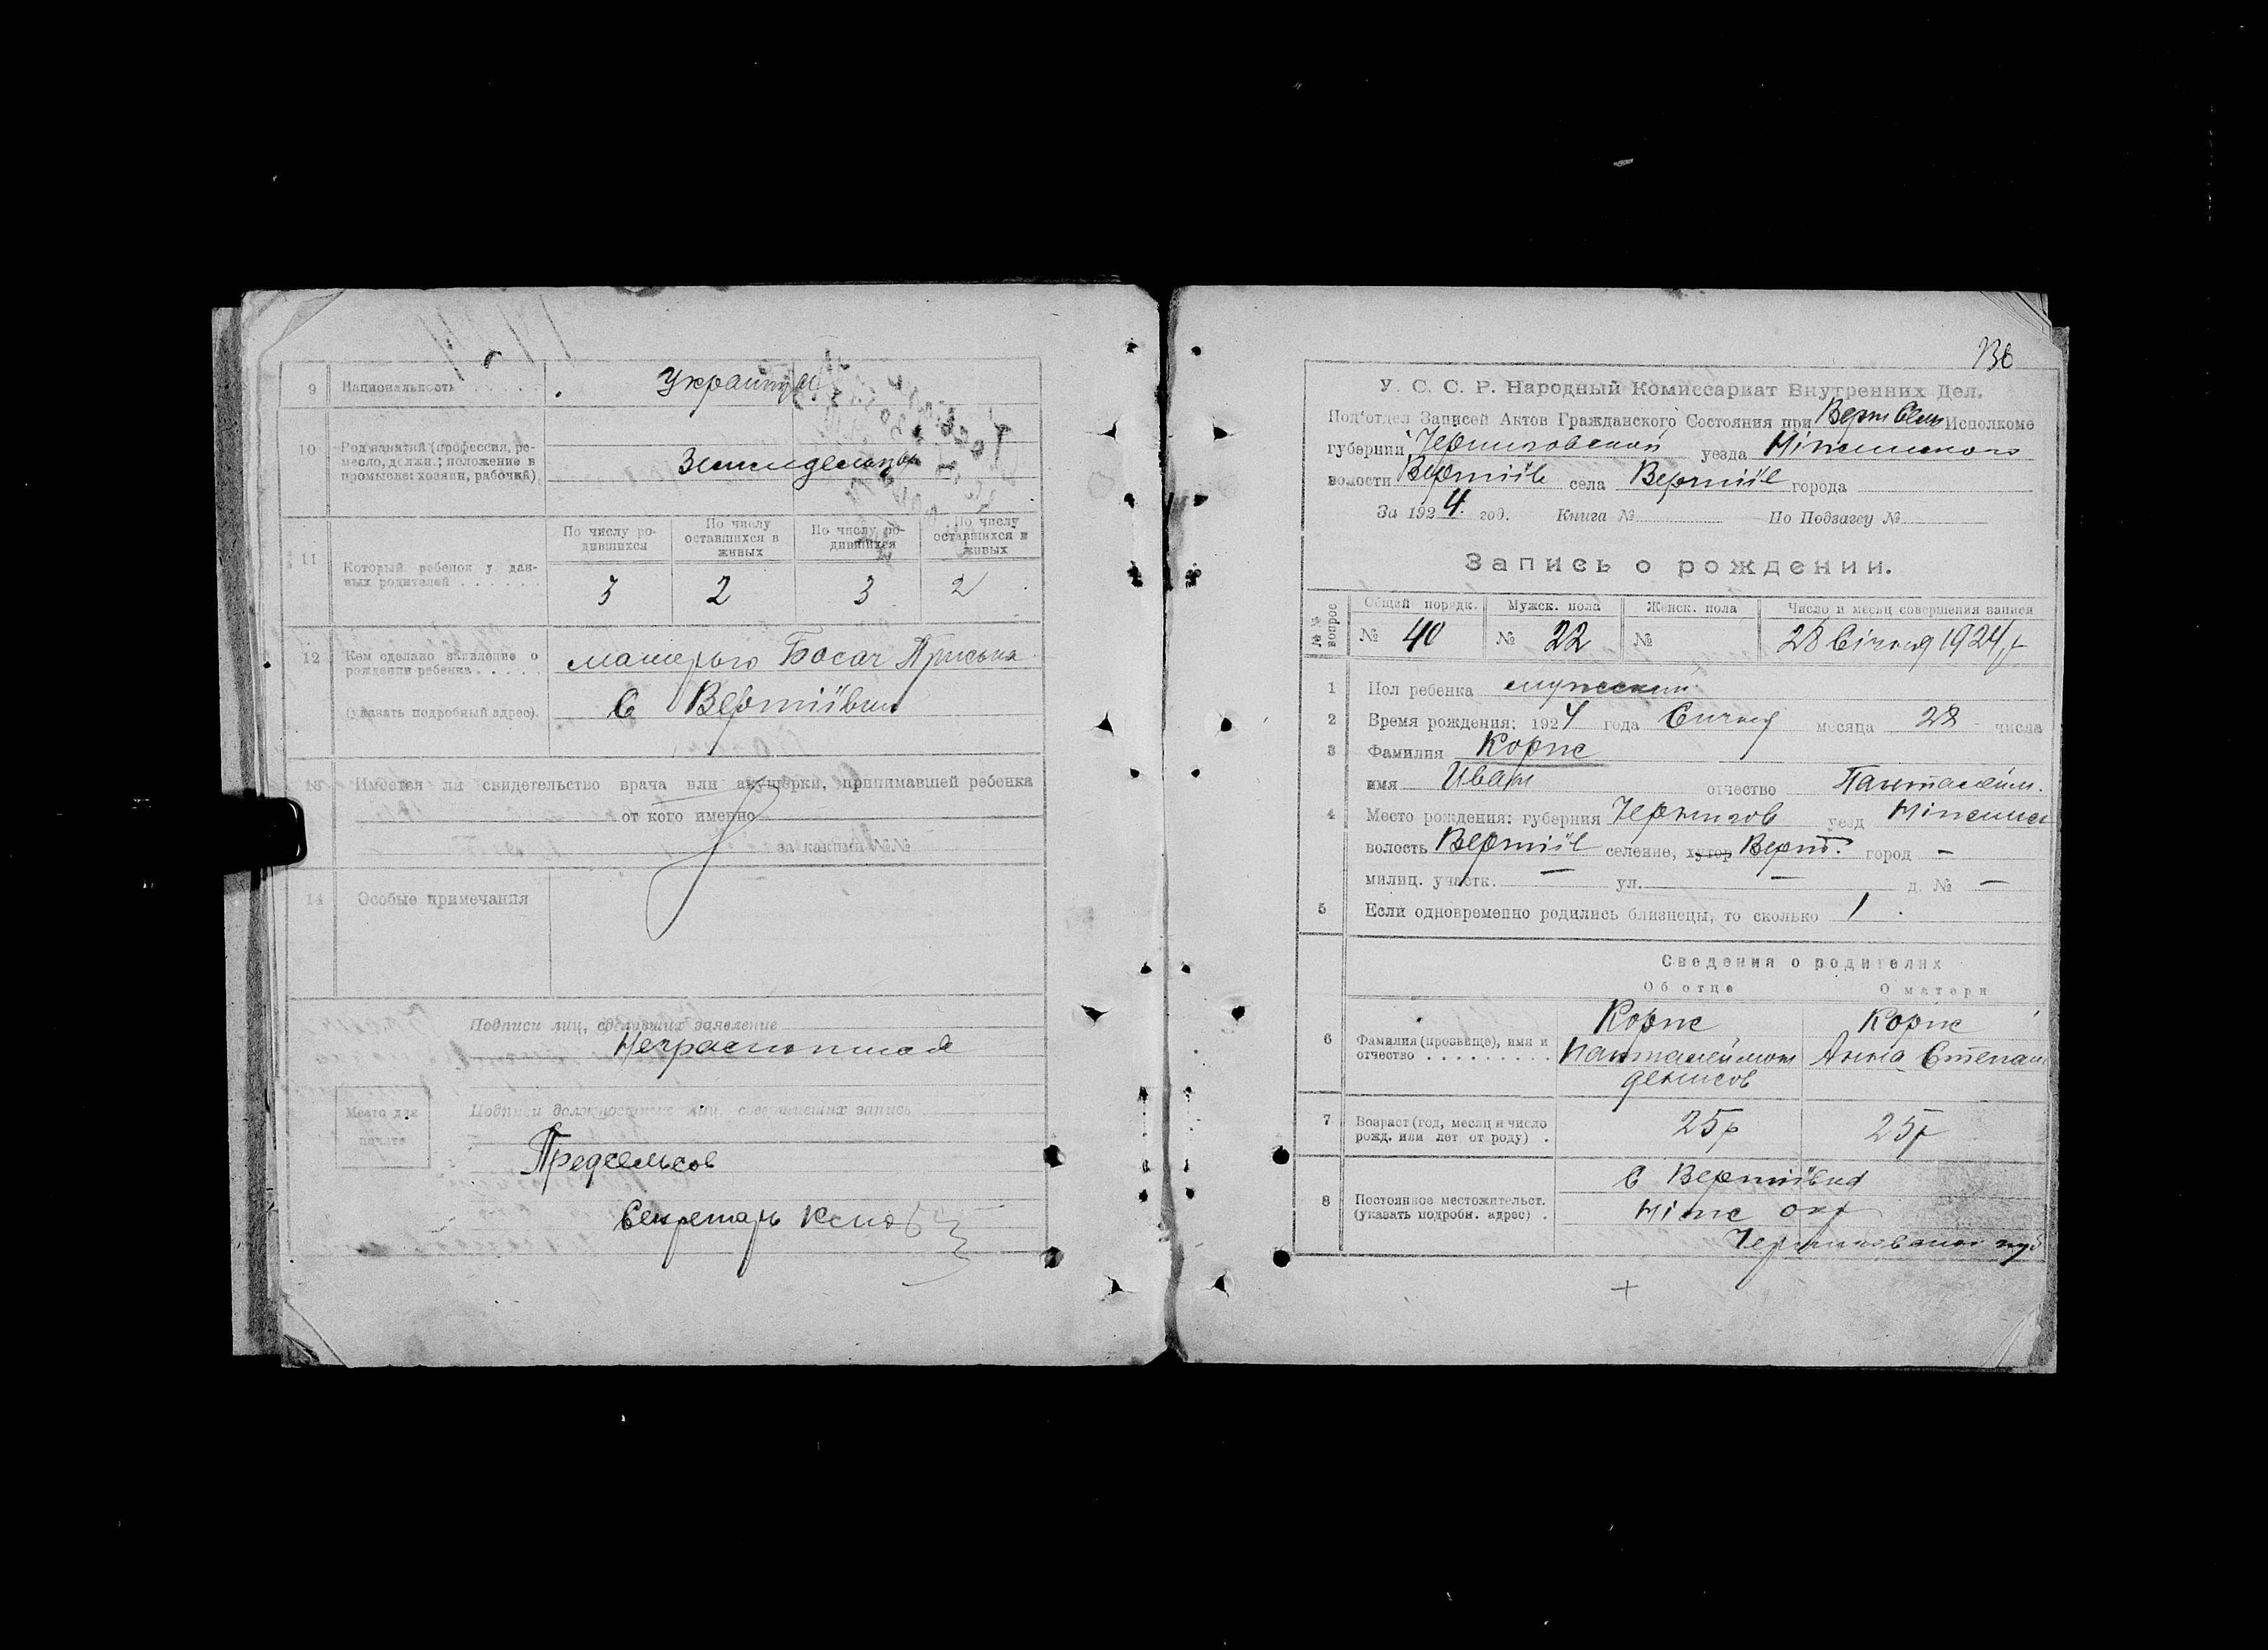 9 Национальность . . . . . Украинцы
10 Род занятий (профессия, ре-
месло, должн.; положение в
промысле: хозяин, рабочий)
11 Который ребенок у дан-
ных родителей . . . . . . .
По числу ро-
дившихся
По числу
оставшихся в
живых
По числу ро-
дившихся
По числу
оставшихся в
живых
3 2 3 2
12 Кем сделано заявление о
рождении ребенка . . . . .
матерью Босач Приська
(указать подробный адрес).
С Вертіївки
13 Имеется ли свидетельство врача или акушерки, принимавшей ребенка
от кого именно
за какими №№
14 Особые примечания
Подписи лиц, сделавших заявление
Неграмотная
Место для
печати
Подписи должностных лиц, совершивших запись
Предсельсов
Секретарь
У. С. С. Р. Народный Комиссариат Внутренних Дел.
Под'отдел Записей Актов Гражданского Состояния при Верт Исполкоме
губернии Черниговской уезда
волости Вертіїв села Вертіїв города
За 1924. год. Книга № По Подзагсу №
Запись о рождении.
№ №
вопрос
Общей порядк.
Мужск. пола
Женск. пола
Число и месяц совершения записи
№ 40 № 22 № 28 Січня 1924 р
1 Пол ребенка мужеский
2 Время рождения: 1924 года Сичня месяца 28 числа
3 Фамилия Корпс
имя Иван отчество Панталейм.
4 Место рождения: губерния Чернигов уезд
волость Вертіїв селение, хутор Верт. город —
милиц. участк. — ул. — д. № —
5 Если одновременно родились близнецы, то сколько 1
Сведения о родителях
Об отце О матери
6 Фамилия (прозвище), имя и
отчество . . . . . . . . . .
Корпс
Панталеймон
Денисов
Корпс
Анна Степан
7 Возраст (год, месяц и число
рожд. или лет от роду) .
25 р 25 р
8 Постоянное местожительст.
(указать подробн. адрес) .
С Вертіївка
Ніж окр
Черниговской губ